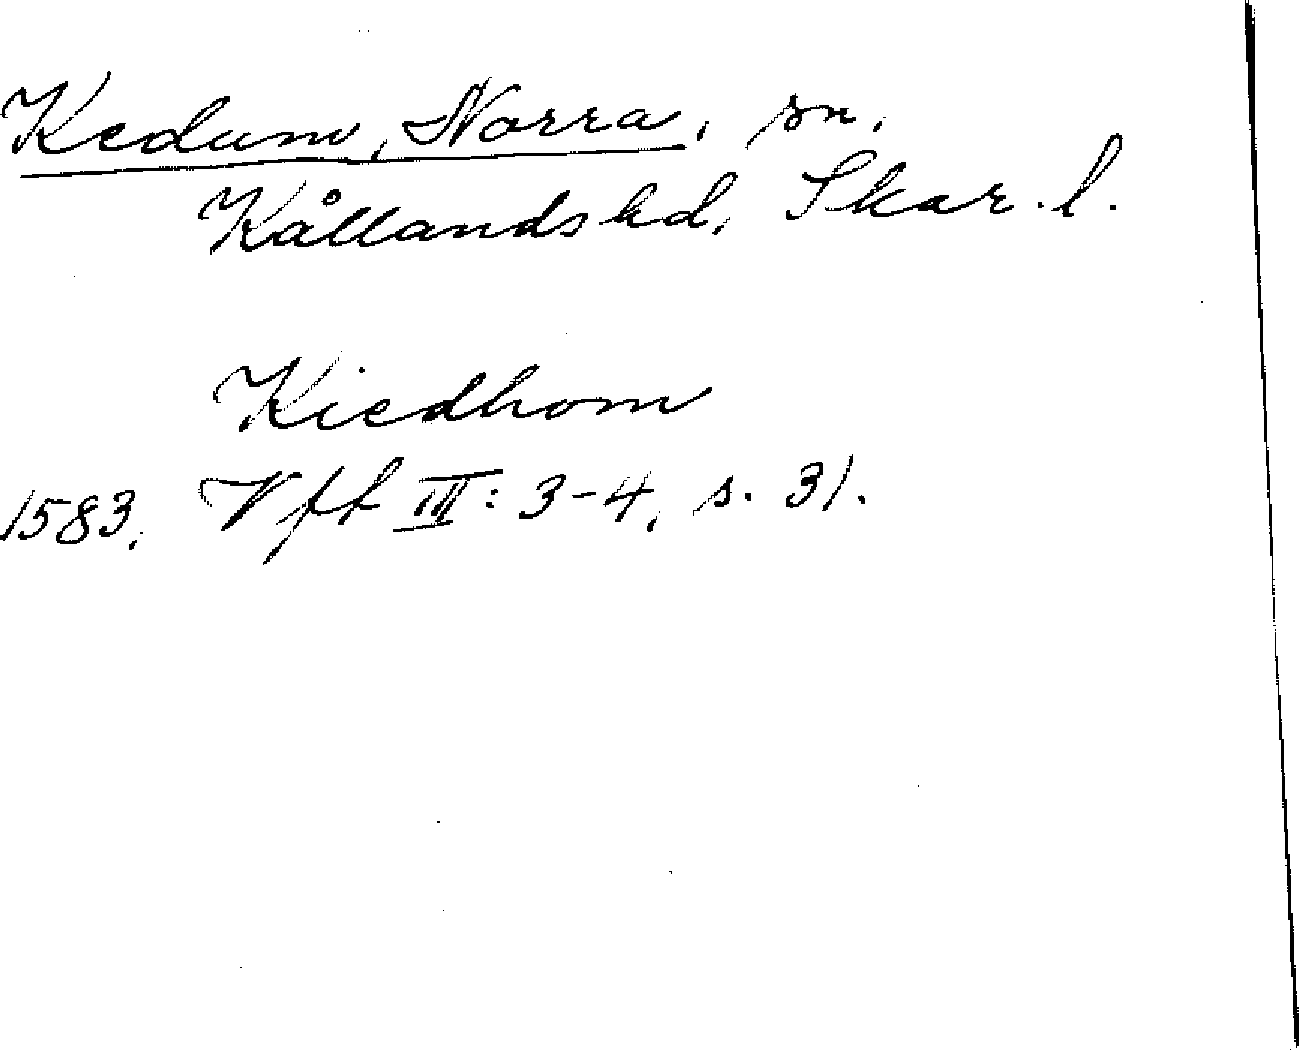 Kedum, Norra, sn,
Kållands hd, Skar. l.
Kiedhom
1583, Vff III: 3-4, s. 31.